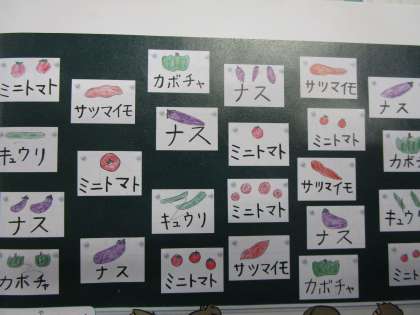 ミニトマト
キュウリ
ナス
カボチャ
サツマイモ
ミニトマト
ナス
カボチャ
ナス
キュウリ
ミニトマト
ナス
ミニトマト
ミニトマト
サツマイモ
サツマイモ
ミニトマト
サツマイモ
ナス
カボチャ
ナス
カボチャ
キュウ
カボチ